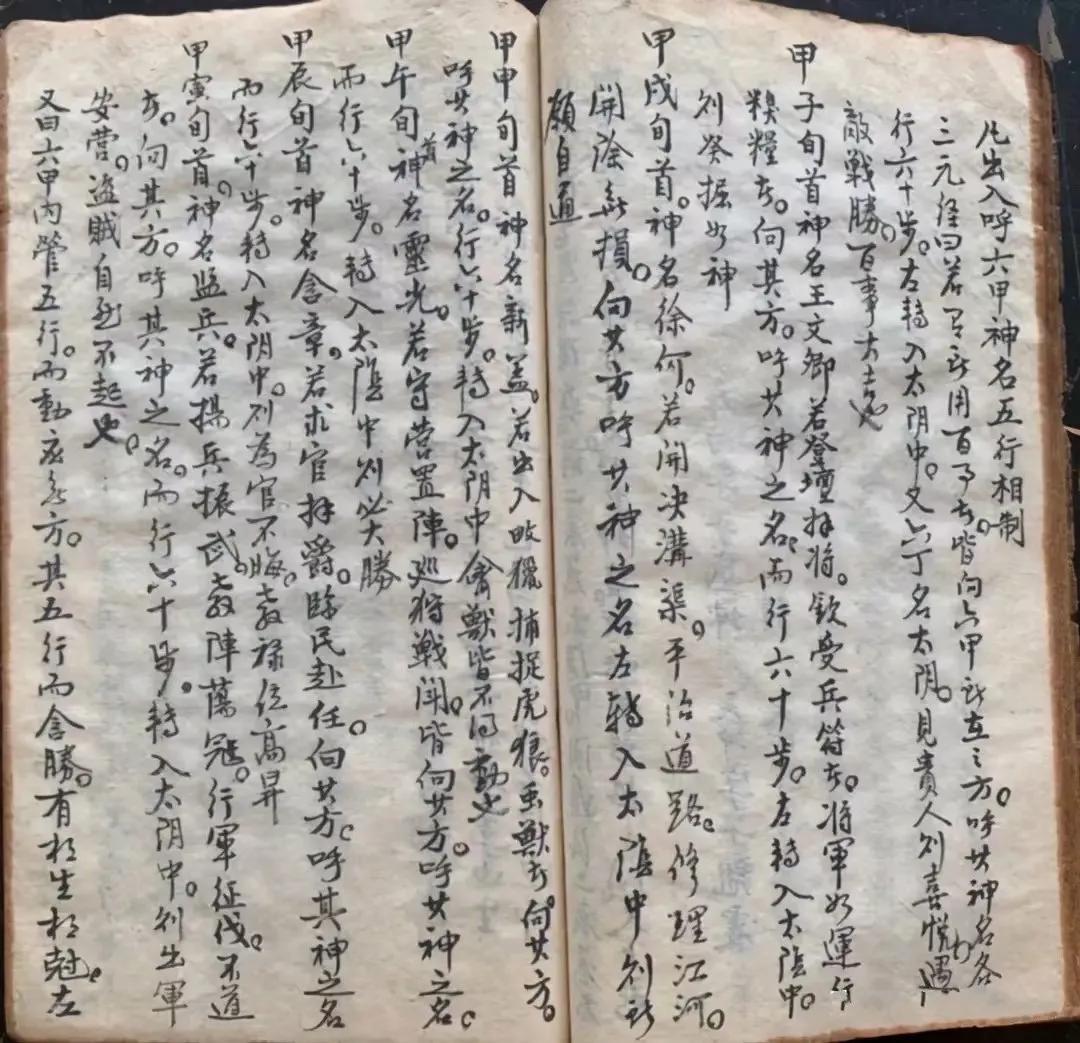 凡出入呼六甲神名五行相制
三元經曰若有所用百事者。皆向六甲所在之方。呼其神名各
行六十步。左轉入太阴中。又六丁名太阴。見貴人則喜悅遇
敵戰勝。百事大吉也
甲子旬首神名王文卿若登壇拜将。欽受兵符者。将軍如運行
糗糧者。向其方。呼其神之名。而行六十步。左轉入太陰中。
則發掘如神
甲戌旬首。神名徐何。若開决溝渠。平治道路。修理江河。
開除無損。向其方呼其神之名左轉入太陰中則所
願自通
甲申旬首神名新盖。若出入畋獵捕捉虎狼。虫獸者。向其方。
呼其神之名。行六十步。轉入太阴中禽獸皆不得動也
甲午旬首神名靈光。若守营置陣。巡狩戰闘。皆向其方。呼其神之名。
而行六十步。轉入太陰中则必大勝
甲辰旬首神名含章。若求官拜爵。臨民赴任。向其方。呼其神之名
而行六十步。轉入太阴中。则為官不悔。 禄位高昇
甲寅旬首。神名监兵。若揚兵振武。 陣蕩寇。行軍征伐。不道
者。向其方。呼其神之名。而行六十步。轉入太阴中。则出軍
安营。盗賊自然不起也。
又曰六甲内管五行。而動 方。其五行而含勝。有相生相尅左